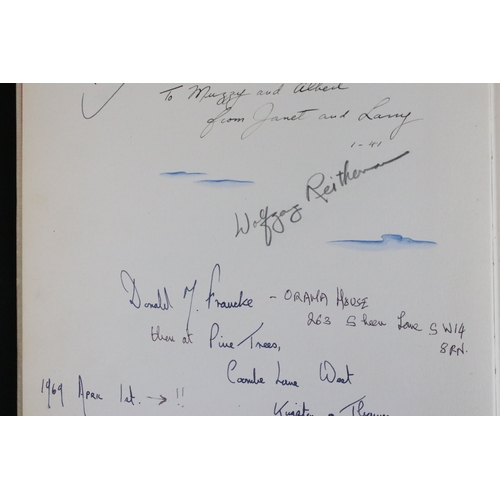 To Muggy and Albert
from Janet and Larry
1-41
Wolfgang Reitherman
Donald M. Francke - ORAMA HOUSE
263 Sheen Lane SW14
8RN.
then at Pine Trees,
Coombe Lane West
1969 April 1st. → !!
Kingston